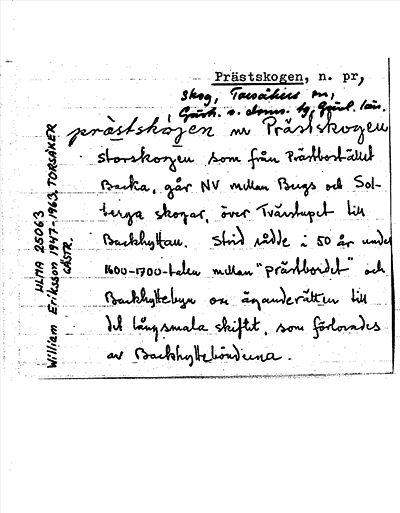 Prästskogen, n. pr,
skog, Torsåkers sn,
Gästr. ö. doms. tg, Gävl. län.
prästskọ́gen nu Prästskogen
storskogen som från Prästbostället
Backa, går NV mellan Bergs och Sol-
berga skogar, över Tvärstupet till
Backhyttan. Strid rådde i 50 år under
1600-1700-talen mellan "prästbordet" och
Backhyttebyn om äganderätten till
det långsmala skiftet, som förlorades
av Backhyttebönderna.
ULMA 25063
William Eriksson 1947-1963, TORSÅKER
GÄSTR.